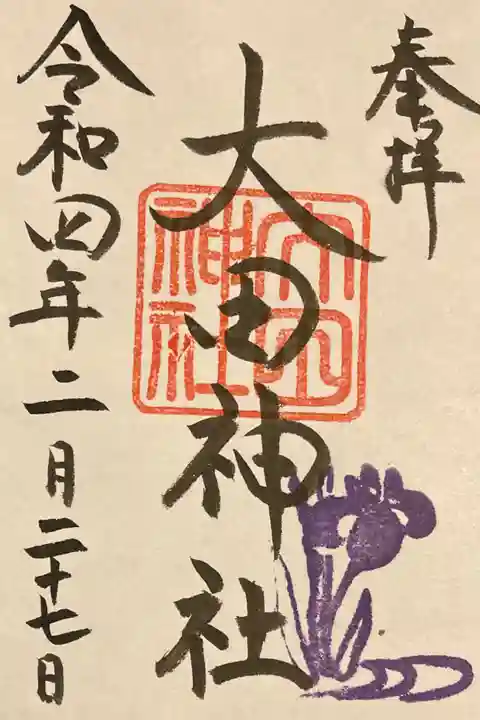 奉拝
大田神社
大田神社
令和四年二月二十七日